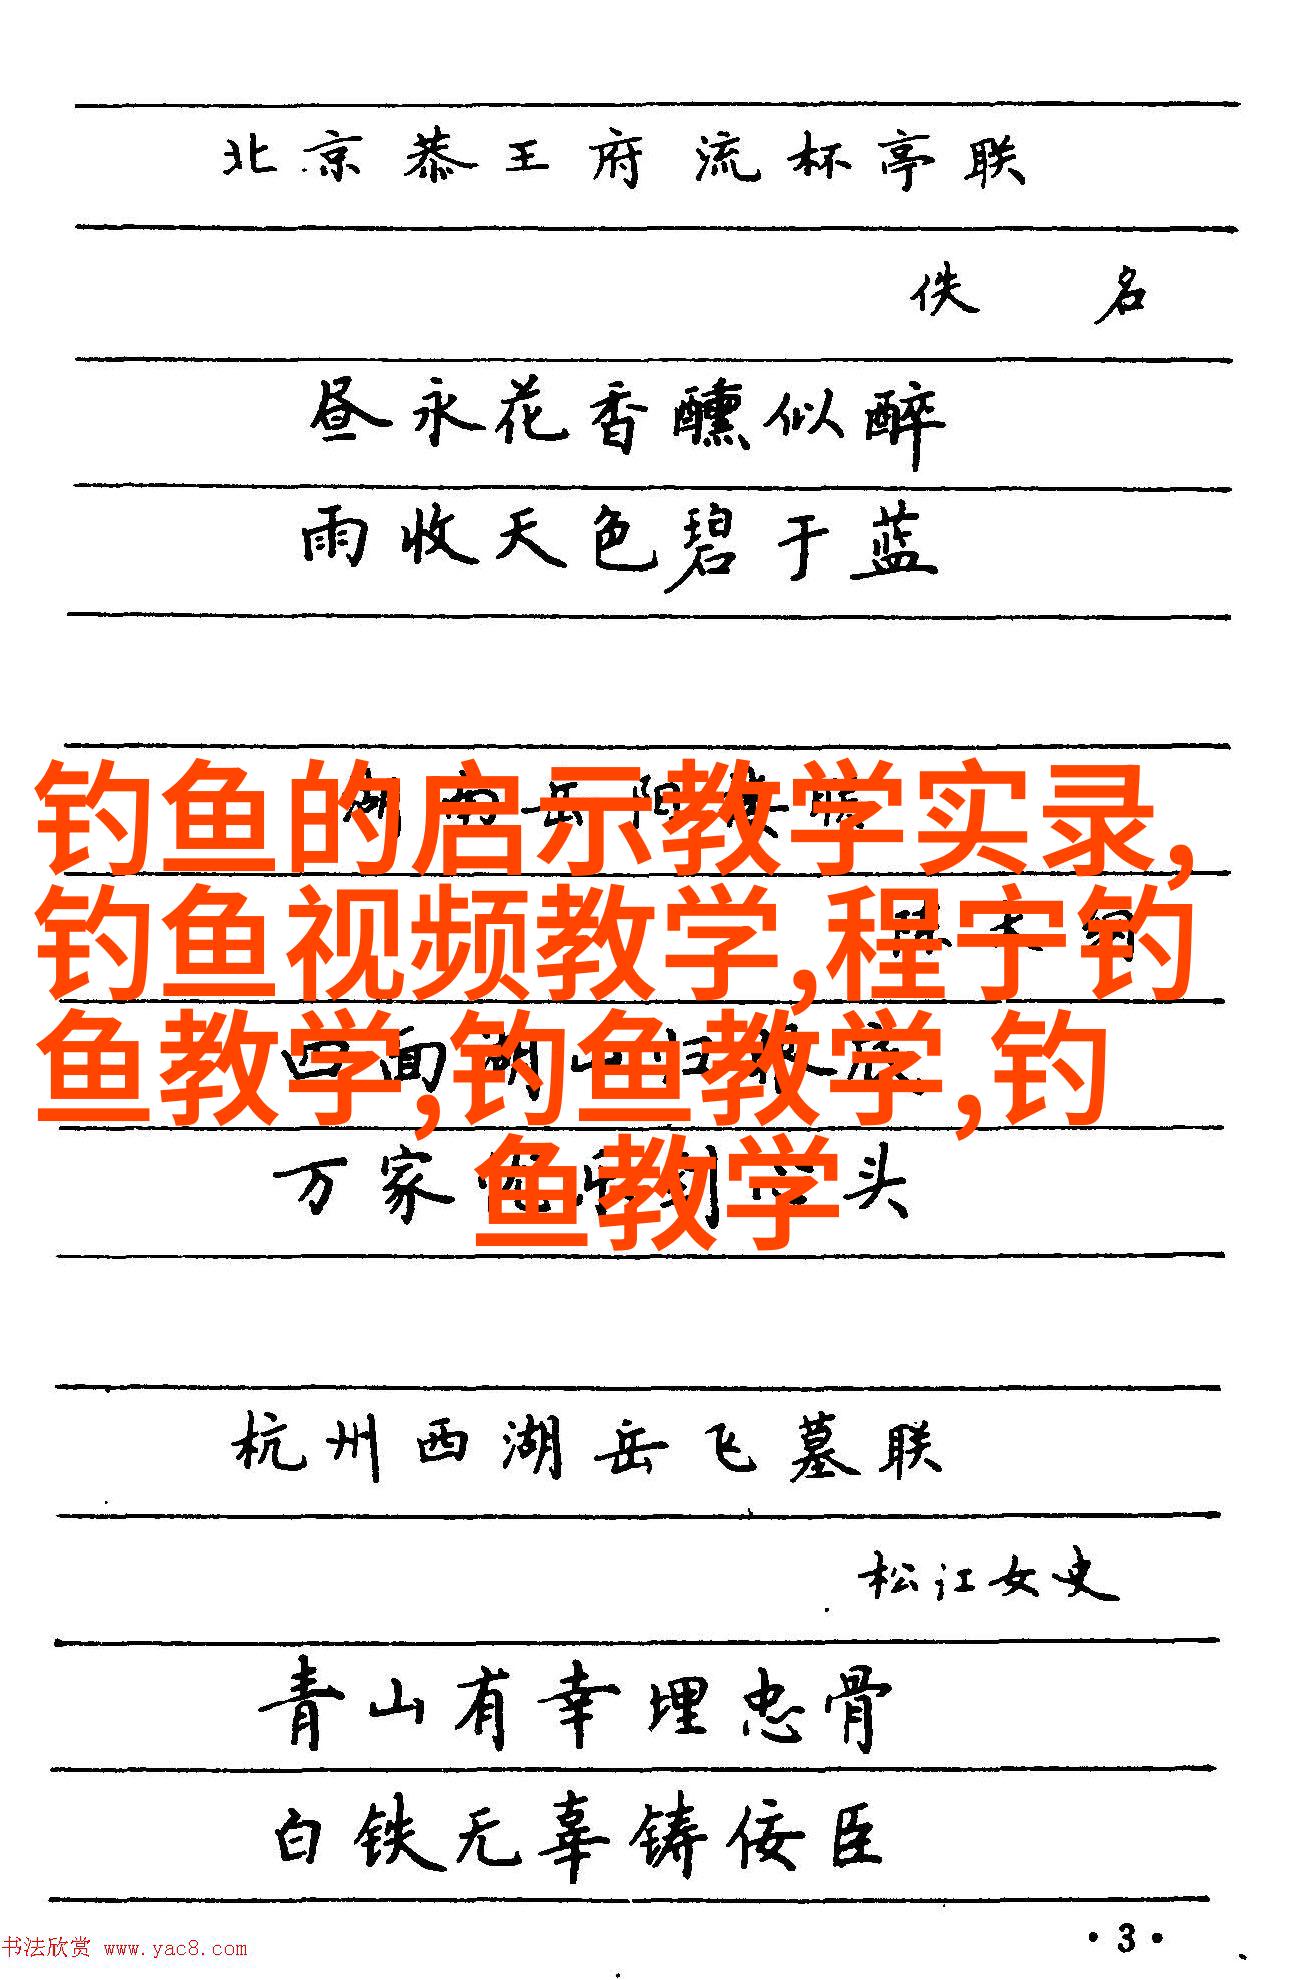 北京恭王府流杯亭联
佚名
昼永花香醺似醉
雨收天色碧于蓝
钓鱼的启示教学实录,
钓鱼视频教学,程宁钓
鱼教学,钓鱼教学,钓
鱼教学
四面湖山归眼底
万家忧乐到心头
杭州西湖岳飞墓联
松江女史
青山有幸埋忠骨
白铁无辜铸佞臣
·3·
书法欣赏 www.yac8.com